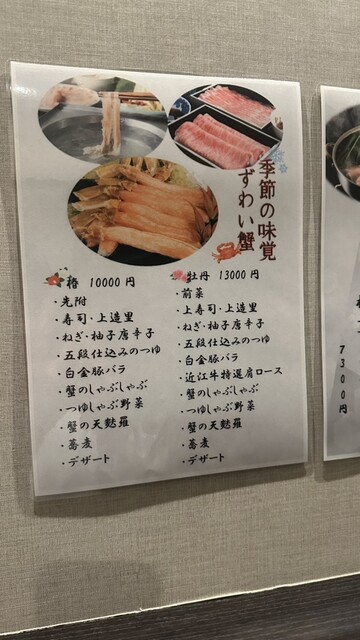 季節の味覚
ずわい蟹
椿 10000円
・先附
・寿司・上造里
・ねぎ・柚子唐辛子
・五段仕込みのつゆ
・白金豚バラ
・蟹のしゃぶしゃぶ
・つゆしゃぶ野菜
・蟹の天麩羅
・蕎麦
・デザート
牡丹 13000円
・前菜
・上寿司・上造里
・ねぎ・柚子唐辛子
・五段仕込みのつゆ
・白金豚バラ
・近江牛特選肩ロース
・蟹のしゃぶしゃぶ
・つゆしゃぶ野菜
・蟹の天麩羅
・蕎麦
・デザート
7300円